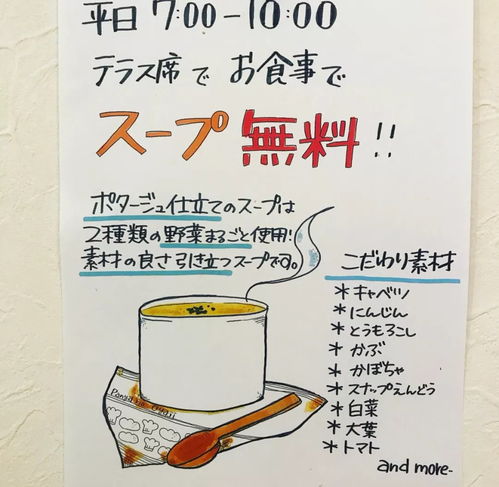 平日 7:00-10:00
テラス席で お食事で
スープ 無料!!
ポタージュ仕立てのスープは
2種類の野菜まるごと使用!
素材の良さ引き立つスープです。
こだわり素材
*キャベツ
*にんじん
*とうもろこし
*かぶ
*かぼちゃ
*スナップえんどう
*白菜
*大葉
*トマト
and more..